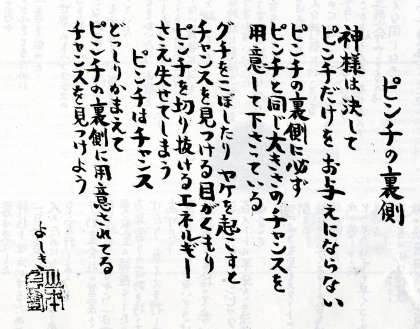 ピンチの裏側
神様は決して
ピンチだけをお与えにならない
ピンチの裏側に必ず
ピンチと同じ大きさのチャンスを
用意して下さっている
グチをこぼしたりヤケを起こすと
チャンスを見つける目がくもり
ピンチを切り抜けるエネルギー
さえ失せてしまう
ピンチはチャンス
どっしりかまえて
ピンチの裏側に用意されてる
チャンスを見つけよう
よしき